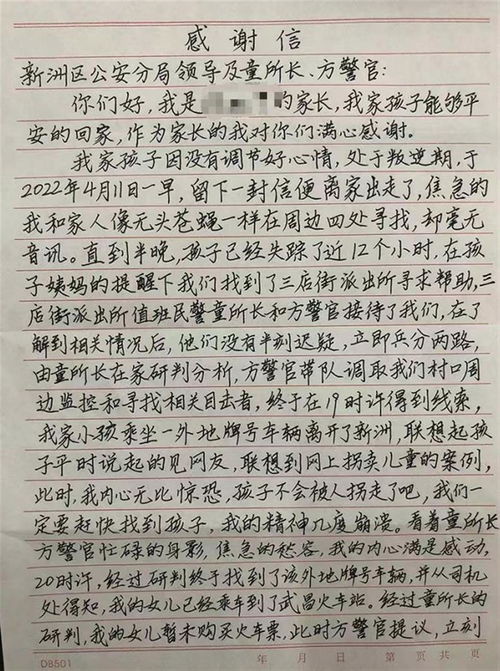 感谢信
新洲区公安分局领导及童所长、方警官:
你们好,我是的家长,我家孩子能够平
安的回家,作为家长的我对你们满心感谢。
我家孩子因没有调节好心情,处于叛逆期,于
2022年4月11日一早,留下一封信便离家出走了,焦急的
我和家人像无头苍蝇一样在周边四处寻找,却毫无
音讯。直到半晚,孩子已经失踪了近12个小时,在孩
子姨妈的提醒下我们找到了三店街派出所寻求帮助,三
店街派出所值班民警童所长和方警官接待了我们,在了
解到相关情况后,他们没有半刻迟疑,立即兵分两路,
由童所长在家研判分析,方警官带队调取我们村口周
边监控和寻找相关目击者,终于在19时许得到线索,
我家小孩乘坐一外地牌号车辆离开了新洲,联想起孩
子平时说起的见网友,联想到网上拐卖儿童的案例,
此时,我内心无比惊恐,孩子不会被人拐走了吧,我们一
定要赶快找到孩子,我的精神几度崩溃。看着童所长
方警官忙碌的身影,焦急的愁容,我的内心满是感动,
20时许,经过研判终于找到了该外地牌号车辆,并从司机
处得知,我的女儿已经乘车到了武昌火车站。经过童所长的
研判,我的女儿暂未购买火车票,此时方警官提议,立刻
D8501 年 月 日 第 页 共 页